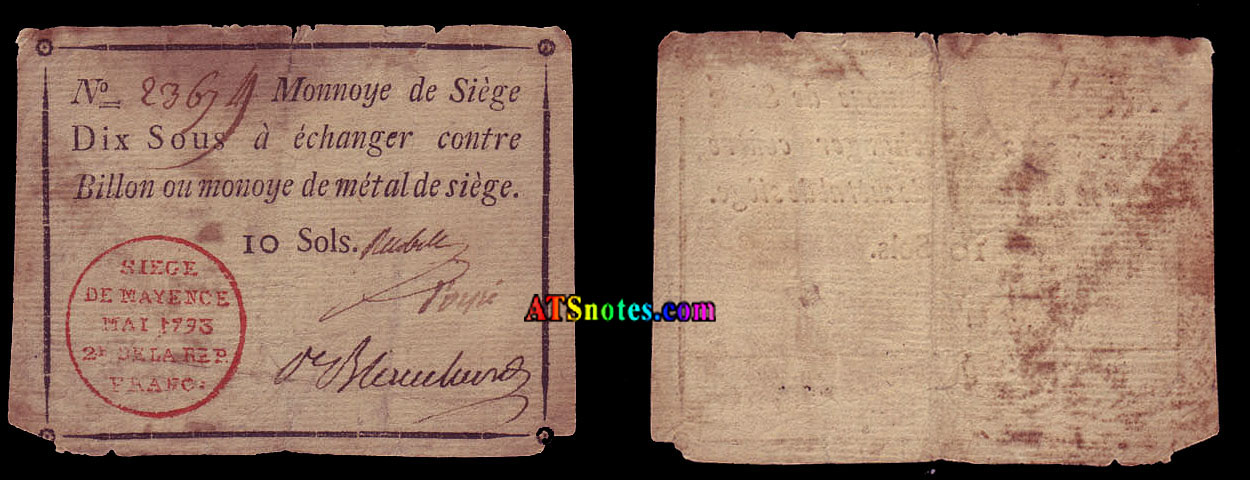 No 23679 Monnoye de Siège
Dix Sous à échanger contre
Billon ou monoye de métal de siège.
10 Sols.
SIEGE
DE MAYENCE
MAI 1793
2E DE LA REP.
FRANC.
ATSnotes.com